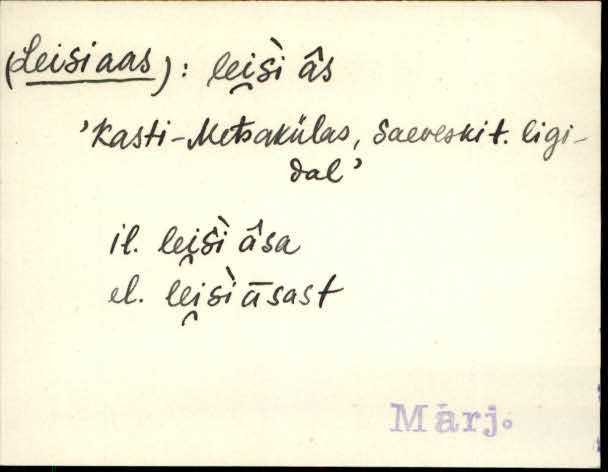 (Leisiaas): lei̯sì âs
'Kasti-Metsakülas, Saeveskit. ligi-
dal'
il. lei̯sì âsa
el. lei̯sì āsast
Märj.